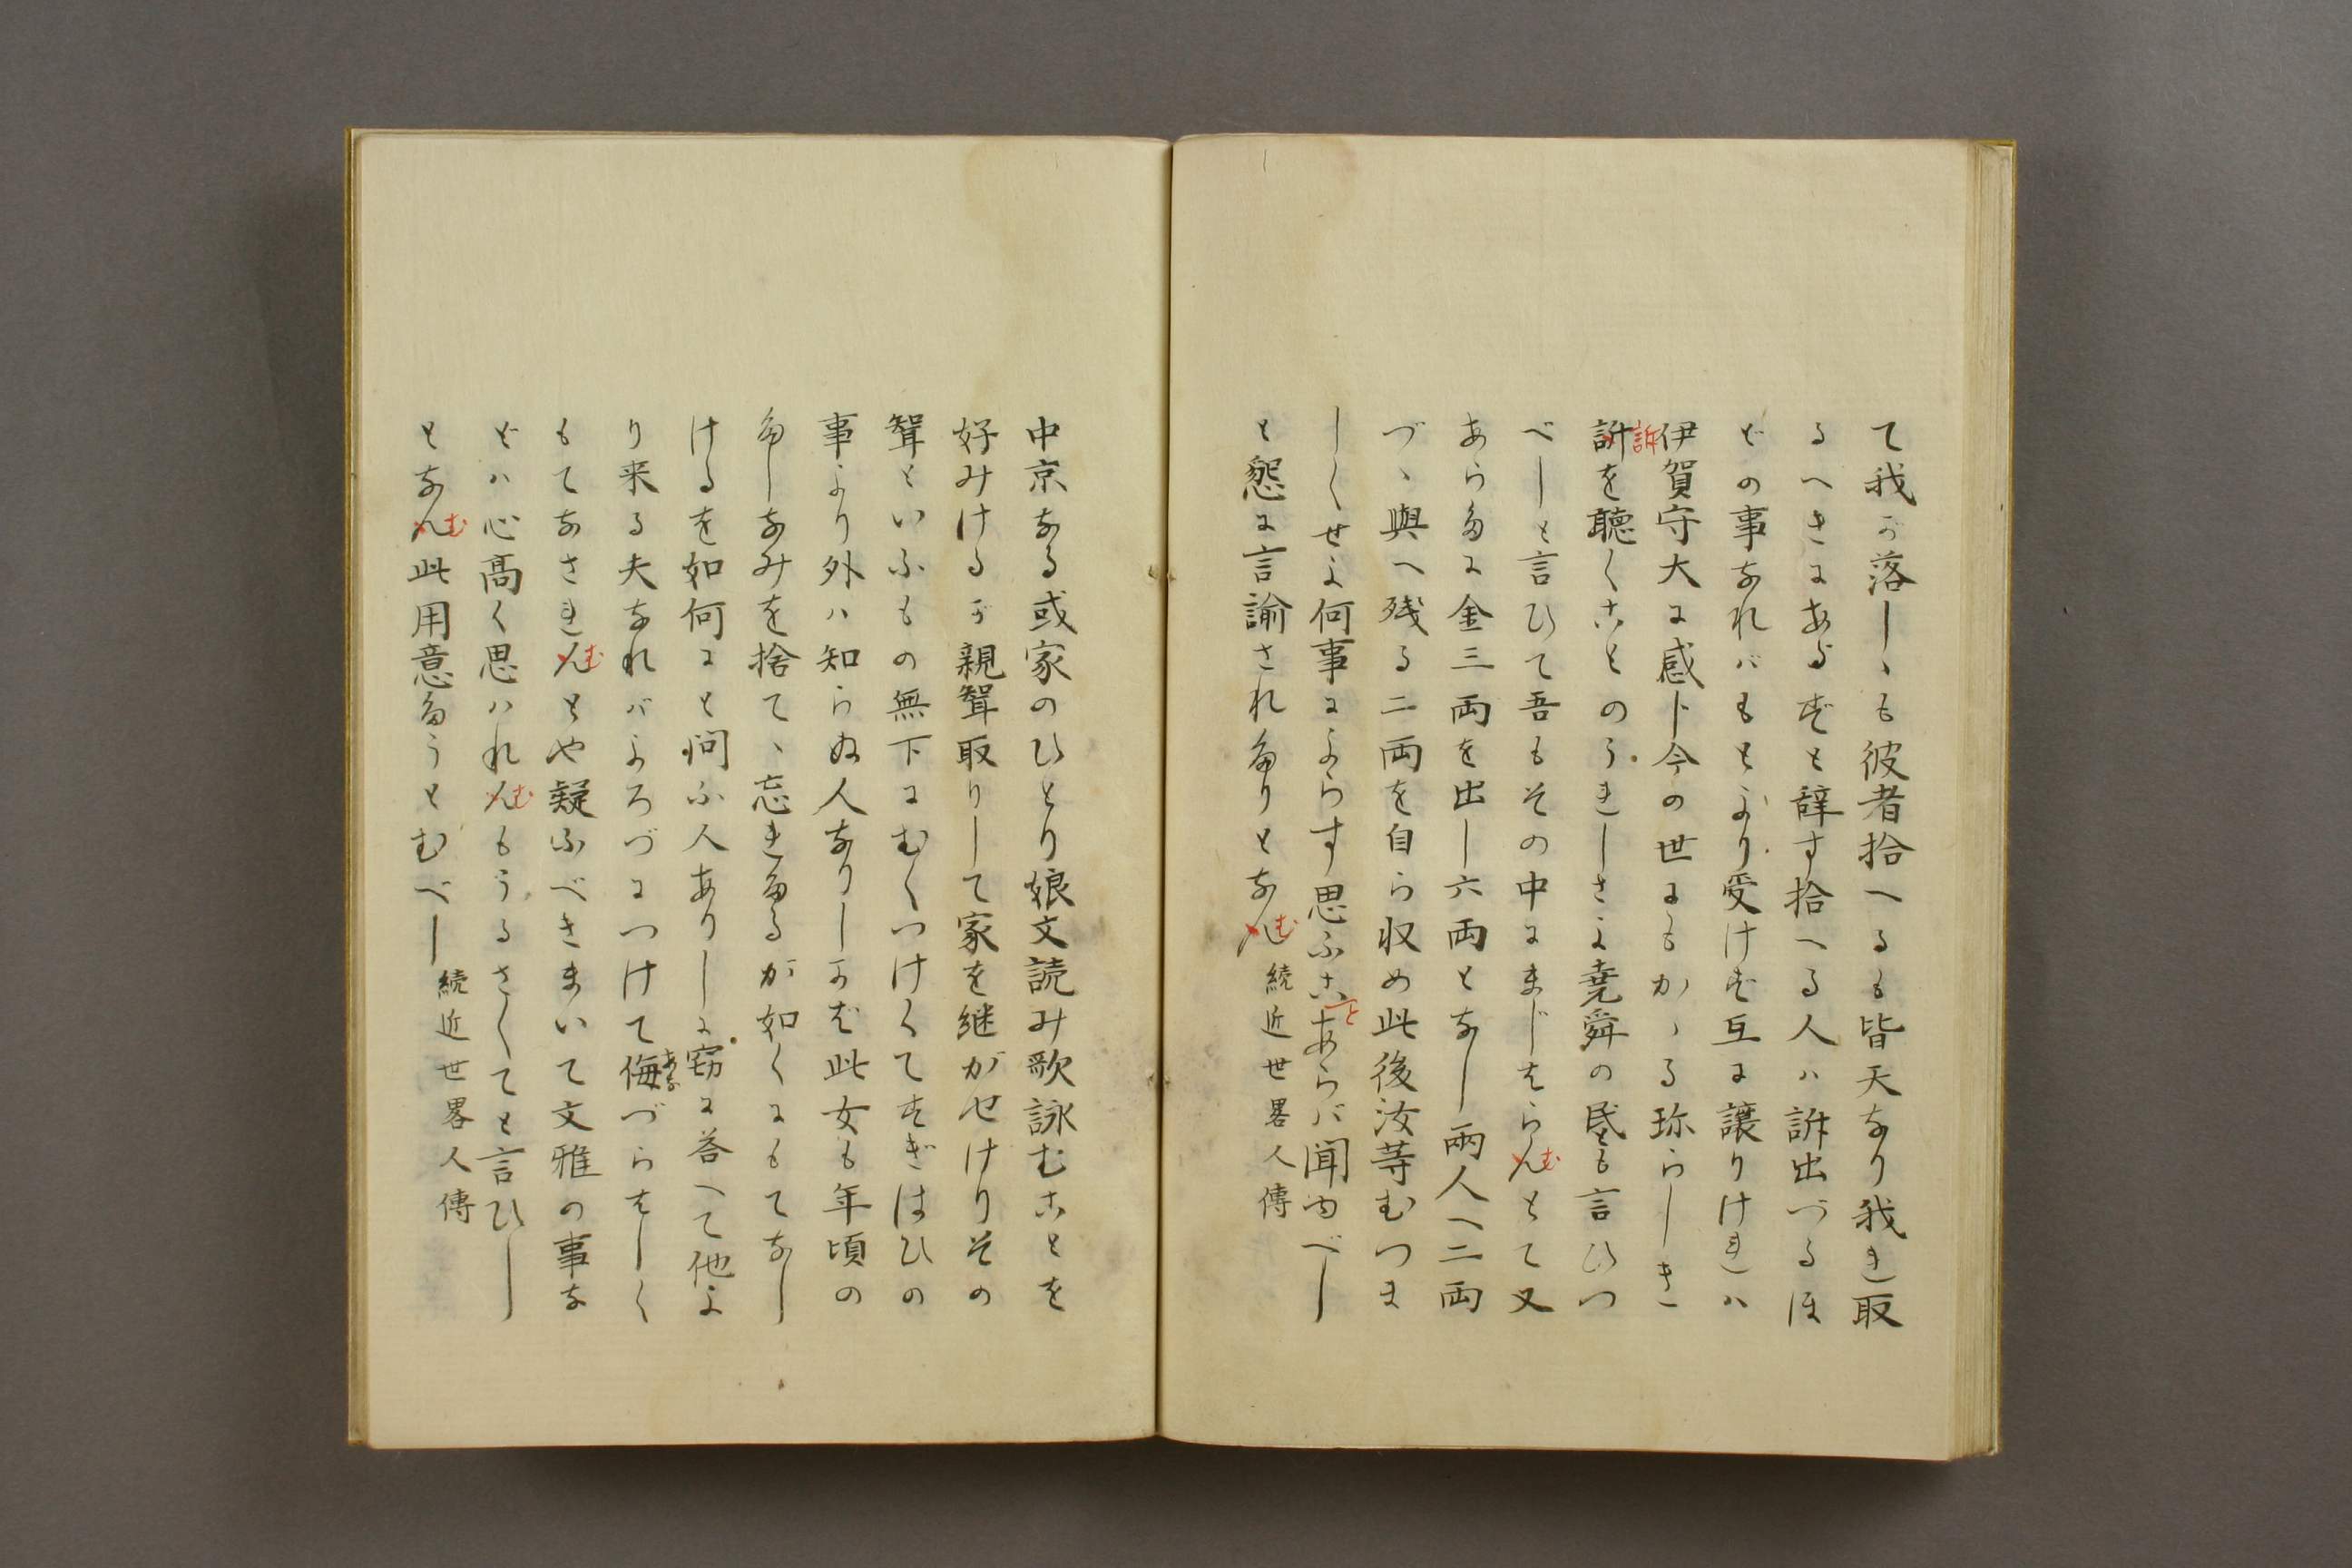 て我が落しゝも彼者拾へるも皆天なり我れ取
るへきにあらずと辞す拾へる人ハ訴出づるほ
どの事なれバもとより受けず互に譲りけれハ
伊賀守大に感ト今の世にもかゝる珎らしき
訴を聴くことのうれしさよ堯舜の民とも言ひつ
訴
べしと言ひて吾もその中にまじはらんとて又
む
あらたに金三両を出し六両となし両人へ二両
づゝ與へ残る二両を自ら収め此後汝等むつま
しくせよ何事によらす思ふこあらバ聞ゆべし
と
と慇に言諭されたりとなん
む
続近世畧人傳
中京なる或家のひとり娘文読み歌詠むことを
好みけるが親聟取りして家を継がせけりその
聟といふもの無下にむくつけくてすぎはひの
事より外ハ知らぬ人なりしかど此女も年頃の
たしなみを捨てゝ忘れたるが如くにもてなし
けるを如何にと問ふ人ありしに窃に答へて他よ
り来る夫なればよろづにつけて侮づらはしく
あな
もてなされんとや疑ふべきまいて文雅の事な
む
どハ心高く思ハれんもうるさくてと言ひし
む
となん此用意たうとむべし
む
続近世畧人傳